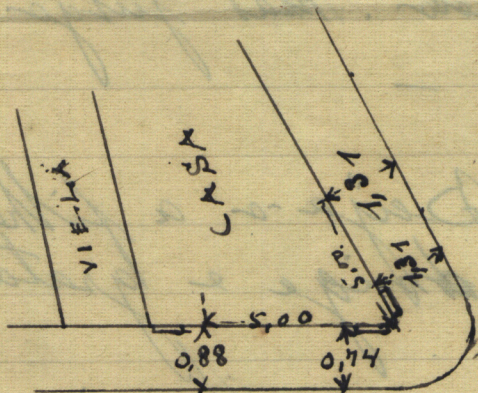 VIELA
CASA
1,31
1,31
5,00
0,88
0,74